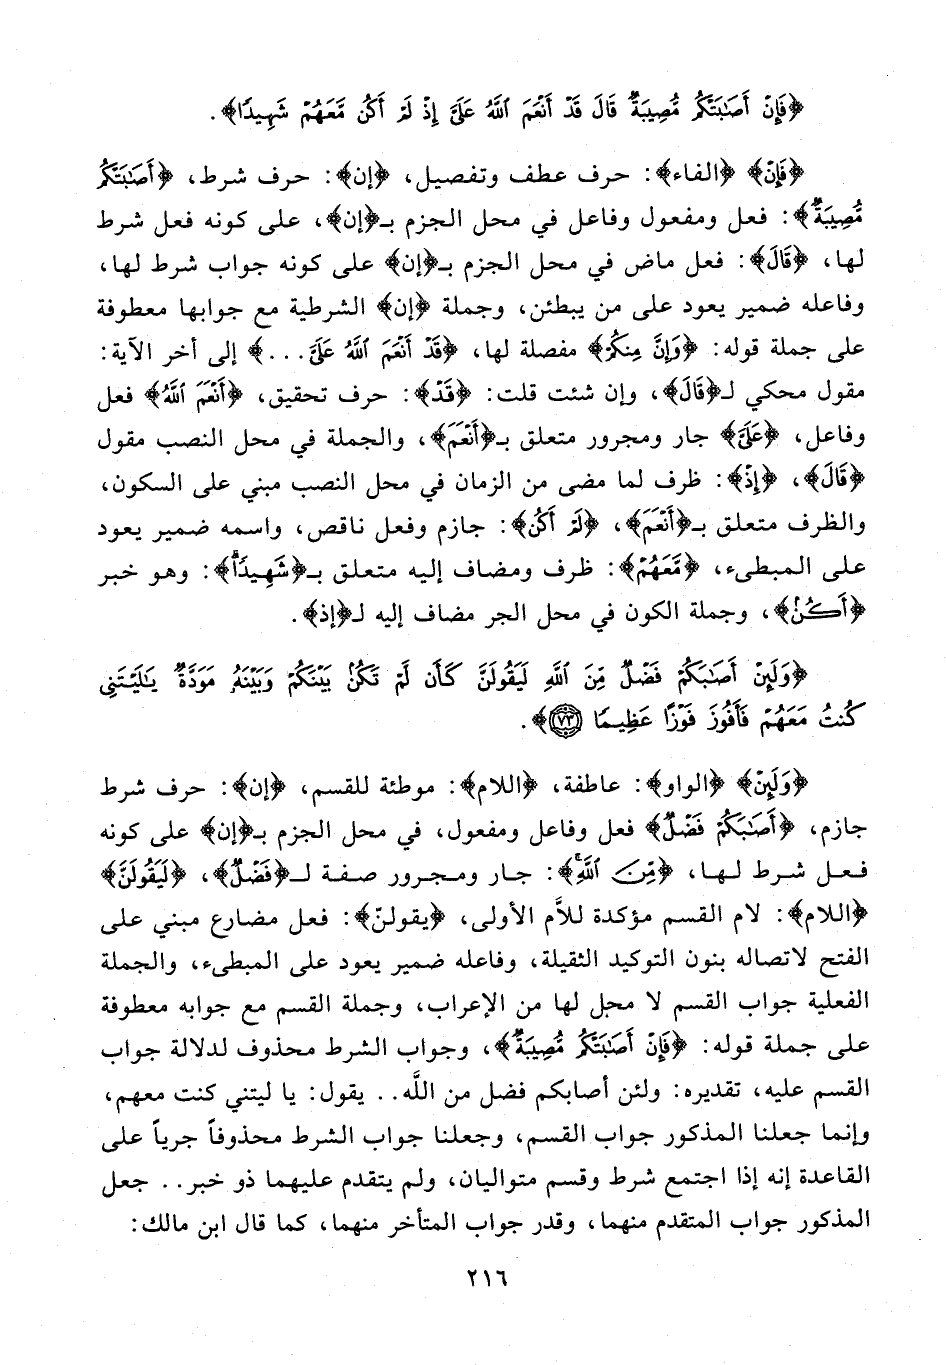 ﴿فَإِنْ أَصَابَتْكُمْ مُصِيبَةٌ قَالَ قَدْ أَنْعَمَ اللَّهُ عَلَيَّ إِذْ لَمْ أَكُنْ مَعَهُمْ شَهِيدًا﴾.
﴿فَإِنْ﴾ ﴿الفاء﴾: حرف عطف وتفصيل، ﴿إن﴾: حرف شرط، ﴿أَصَابَتْكُمْ
مُصِيبَةٌ﴾: فعل ومفعول وفاعل في محل الجزم بـ﴿إن﴾، على كونه فعل شرط
لها، ﴿قَالَ﴾: فعل ماض في محل الجزم بـ﴿إن﴾ على كونه جواب شرط لها،
وفاعله ضمير يعود على من يبطئن، وجملة ﴿إن﴾ الشرطية مع جوابها معطوفة
على جملة قوله: ﴿وَإِنَّ مِنكُمْ﴾ مفصلة لها، ﴿قَدْ أَنْعَمَ اللَّهُ عَلَيَّ...﴾ إلى أخر الآية:
مقول محكي لـ﴿قَالَ﴾، وإن شئت قلت: ﴿قَدْ﴾: حرف تحقيق، ﴿أَنْعَمَ اللَّهُ﴾ فعل
وفاعل، ﴿عَلَيَّ﴾ جار ومجرور متعلق بـ﴿أَنْعَمَ﴾، والجملة في محل النصب مقول
﴿قَالَ﴾، ﴿إِذْ﴾: ظرف لما مضى من الزمان في محل النصب مبني على السكون،
والظرف متعلق بـ﴿أَنْعَمَ﴾، ﴿لَمْ أَكُنْ﴾: جازم وفعل ناقص، واسمه ضمير يعود
على المبطىء، ﴿مَّعَهُمْ﴾: ظرف ومضاف إليه متعلق بـ﴿شَهِيدًا﴾: وهو خبر
﴿أَكُنْ﴾، وجملة الكون في محل الجر مضاف إليه لـ﴿إذ﴾.
﴿وَلَئِنْ أَصَابَكُمْ فَضْلٌ مِّنَ اللَّهِ لَيَقُولَنَّ كَأَن لَّمْ تَكُنْ بَيْنَكُمْ وَبَيْنَهُ مَوَدَّةٌ يَالَيْتَنِي
كُنتُ مَعَهُمْ فَأَفُوزَ فَوْزًا عَظِيمًا ٧٣﴾.
﴿وَلَئِنْ﴾ ﴿الواو﴾: عاطفة، ﴿اللام﴾: موطئة للقسم، ﴿إن﴾: حرف شرط
جازم، ﴿أَصَابَكُمْ فَضْلٌ﴾ فعل وفاعل ومفعول، في محل الجزم بـ﴿إن﴾ على كونه
فعل شرط لها، ﴿مِّنَ اللَّهِ﴾: جار ومجرور صفة لـ﴿فَضْلٌ﴾، ﴿لَيَقُولَنَّ﴾
﴿اللام﴾: لام القسم مؤكدة للَّام الأولى، ﴿يقولنّ﴾: فعل مضارع مبني على
الفتح لاتصاله بنون التوكيد الثقيلة، وفاعله ضمير يعود على المبطىء، والجملة
الفعلية جواب القسم لا محل لها من الإعراب، وجملة القسم مع جوابه معطوفة
على جملة قوله: ﴿فَإِنْ أَصَابَتْكُمْ مُّصِيبَةٌ﴾، وجواب الشرط محذوف لدلالة جواب
القسم عليه، تقديره: ولئن أصابكم فضل من اللَّه.. يقول: يا ليتني كنت معهم،
وإنما جعلنا المذكور جواب القسم، وجعلنا جواب الشرط محذوفاً جرياً على
القاعدة إنه إذا اجتمع شرط وقسم متواليان، ولم يتقدم عليهما ذو خبر.. جعل
المذكور جواب المتقدم منهما، وقدر جواب المتأخر منهما، كما قال ابن مالك:
٢١٦